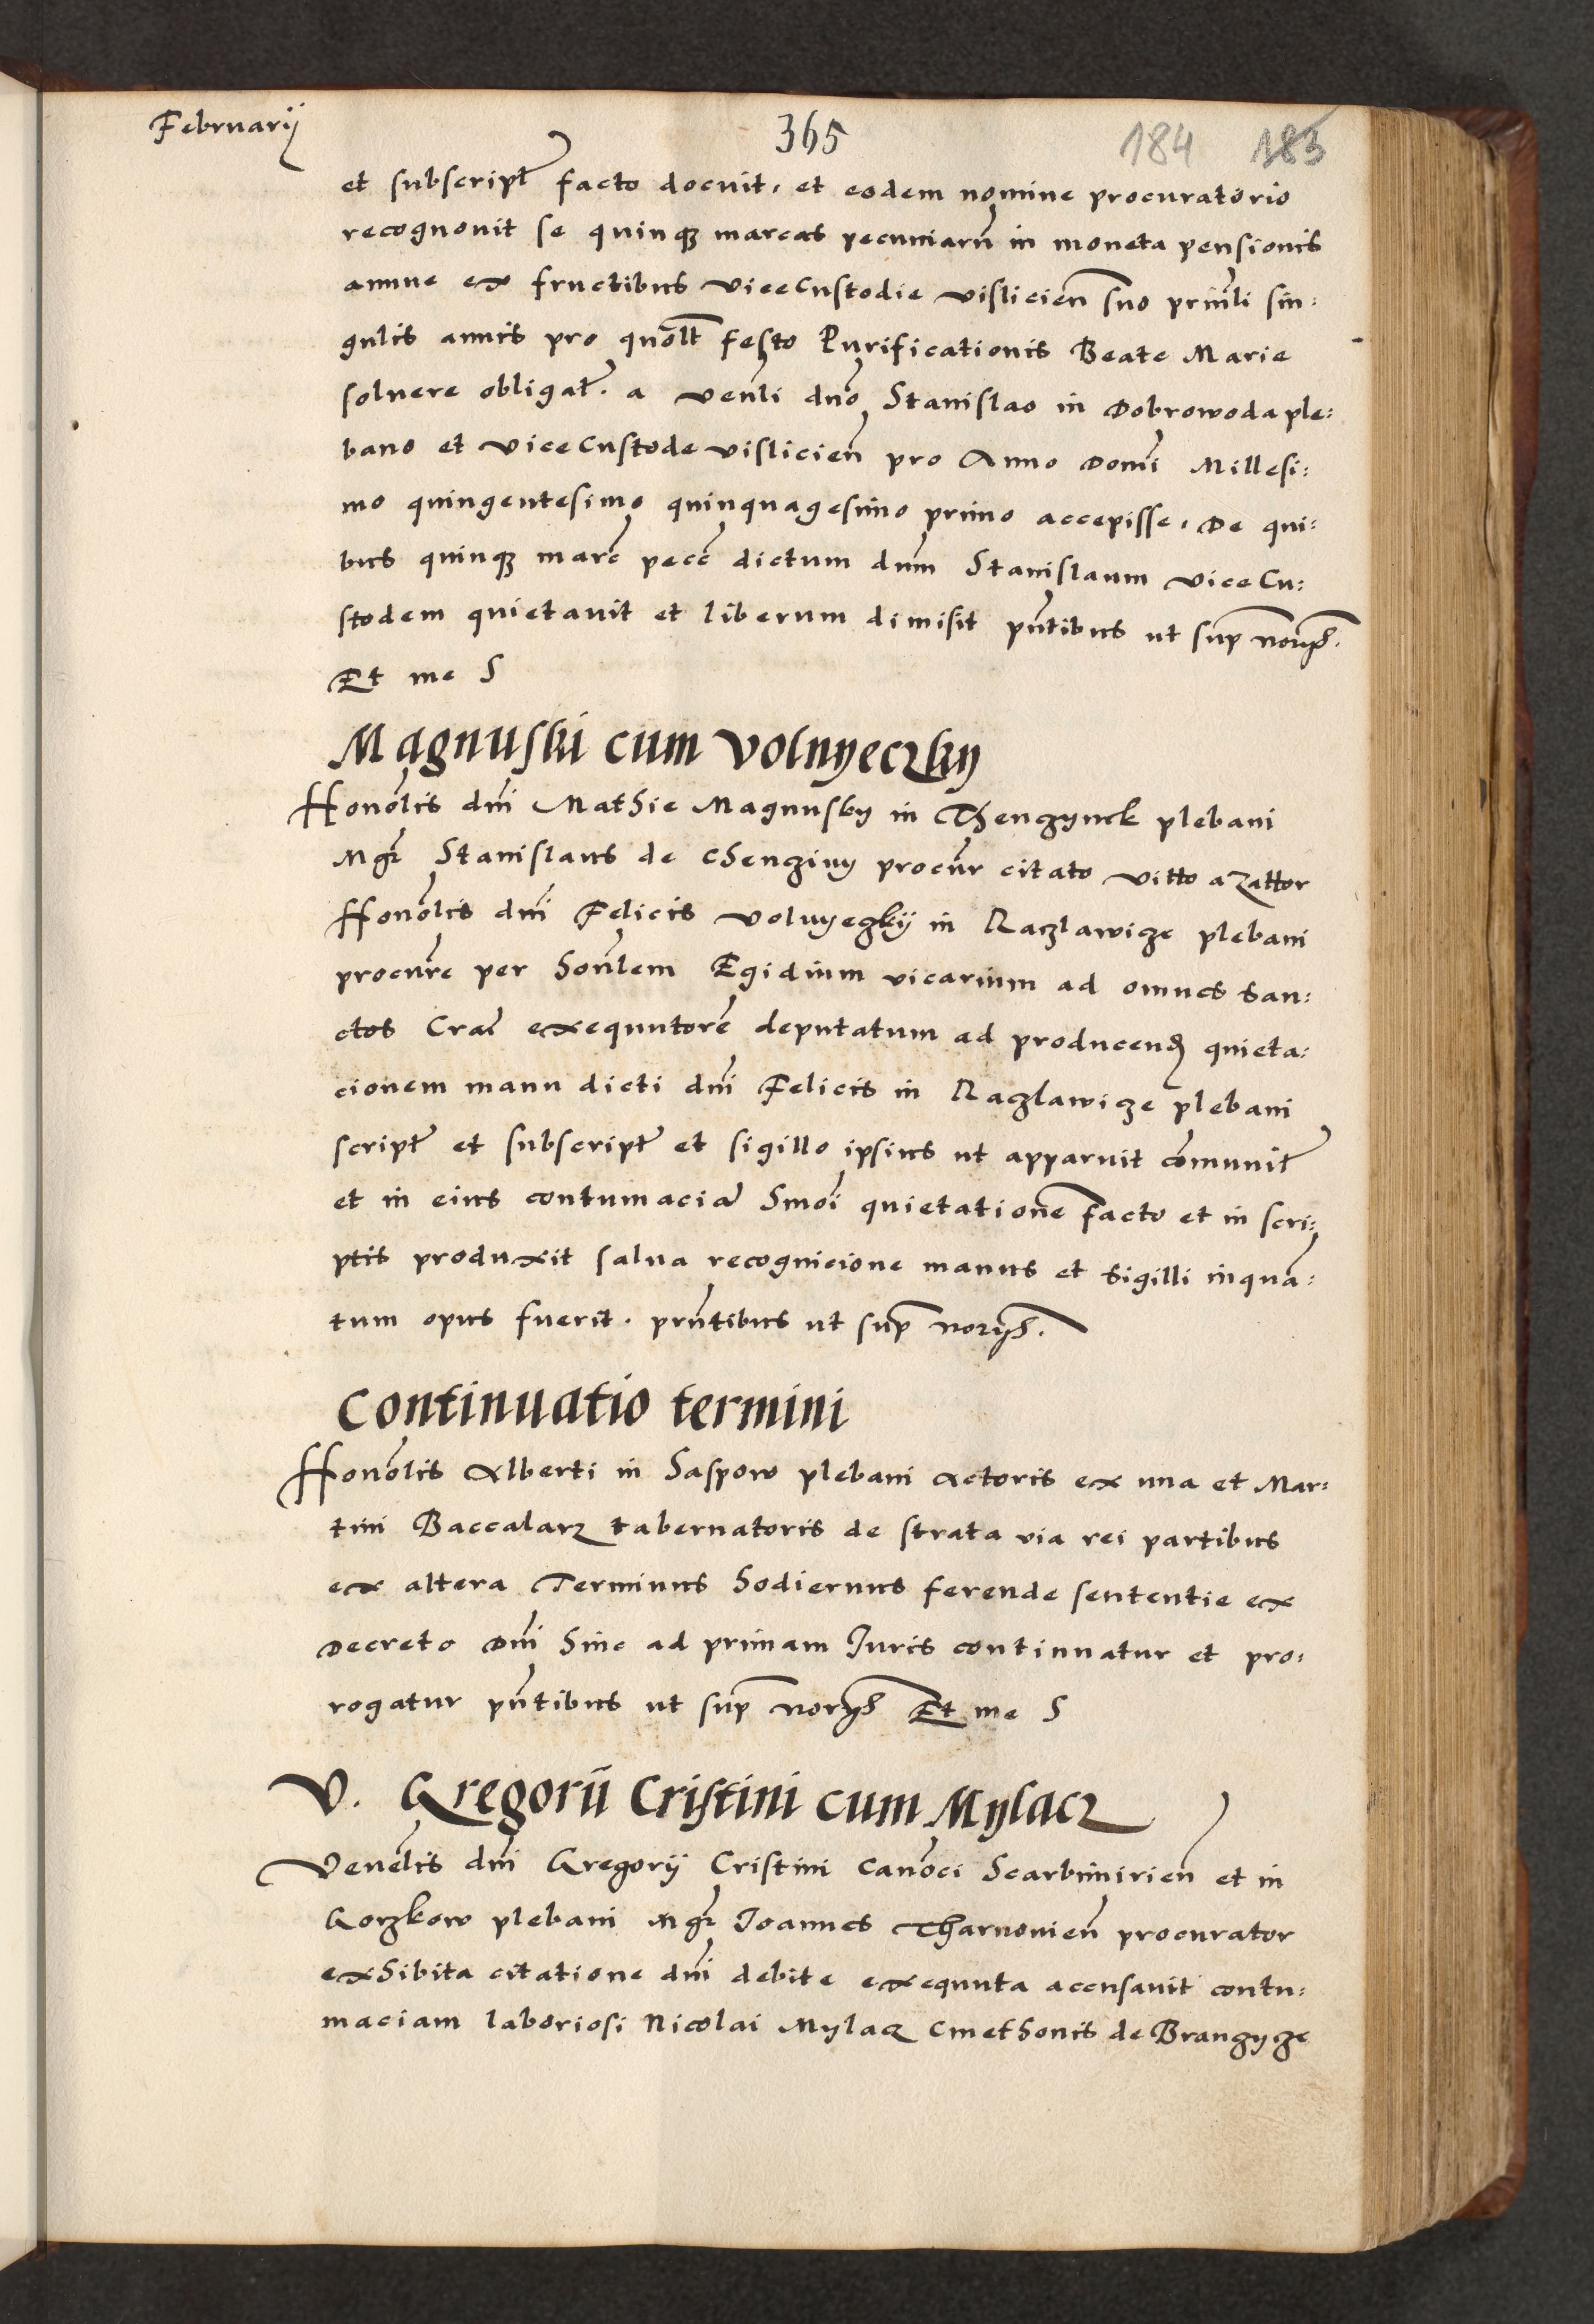 Februarij
365
184 183
et subscript̃ facto docuit, et eodem nomine procuratorio
recognouit se quinqz marcas pecuniarũ in moneta pensionis
annue ex fructibus viceCustodie vislicien̄ suo prin̄li sin:
gulis annis pro quol̄t festo Purificationis Beate Marie
soluere obligat̃. a ven̄li dn̄o Stanislao in Dobrowoda ple:
bano et viceCustode vislicien̄ pro Anno Domī Millesi:
mo quingentesimo quinquagesimo primo accepisse, De qui:
bus quinqz marc̄ pecc̄ dictum dn̄m Stanislaum viceCu:
stodem quietauit et liberum dimisit pn̄tibus ut sup̄ norijs.
Et me S
Magnuski cum Volnyeczky
Honōlis dn̄i Mathie Magnusky in Thenczynek plebani
Mgr̄ Stanislaus de Chenziny procūr citato vitto a Zattor
Honōlis dn̄i Felicis Volnyeczkij in Raczlawicze plebani
procūre per hon̄lem Egidium vicarium ad omnes San:
ctos Cra͞c exequutorē deputatum ad producend̄ quieta:
cionem manu dicti dn̄i Felicis in Raczlawicze plebani
script̃ et subscript̃ et sigillo ipsius ut apparuit cōmunit̃
et in eius contumaciā hmōi quietationē facto et in scri:
ptis produxit salua recognicione manus et sigilli inquā:
tum opus fuerit. prn̄tibus ut sup̄ norijs.
Continuatio termini
Honōlis Alberti in Saspow plebani actoris ex una et Mar:
tini Baccalarz tabernatoris de strata via rei partibus
ex altera Terminus hodiernus ferende sententie ex
Decreto Dn̄i hinc ad primam Juris continuatur et pro:
rogatur pn̄tibus ut sup̄ norijs Et me S
V. Gregorii Cristini cum Mylacz
Venēlis dn̄i Gregorij Cristini canōci Scarbimirien̄ et in
Gorzkow plebani Mgr̄ Joannes Tharnouien̄ procurator
exhibita citatione dn̄i debite exequuta accusauit contu:
maciam laboriosi Nicolai Mylacz cmethonis de Branczycze